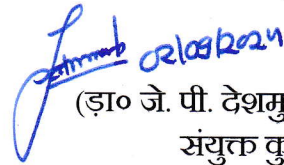 02/09/2024
(ड़ा० जे. पी. देशमु
संयुक्त कु